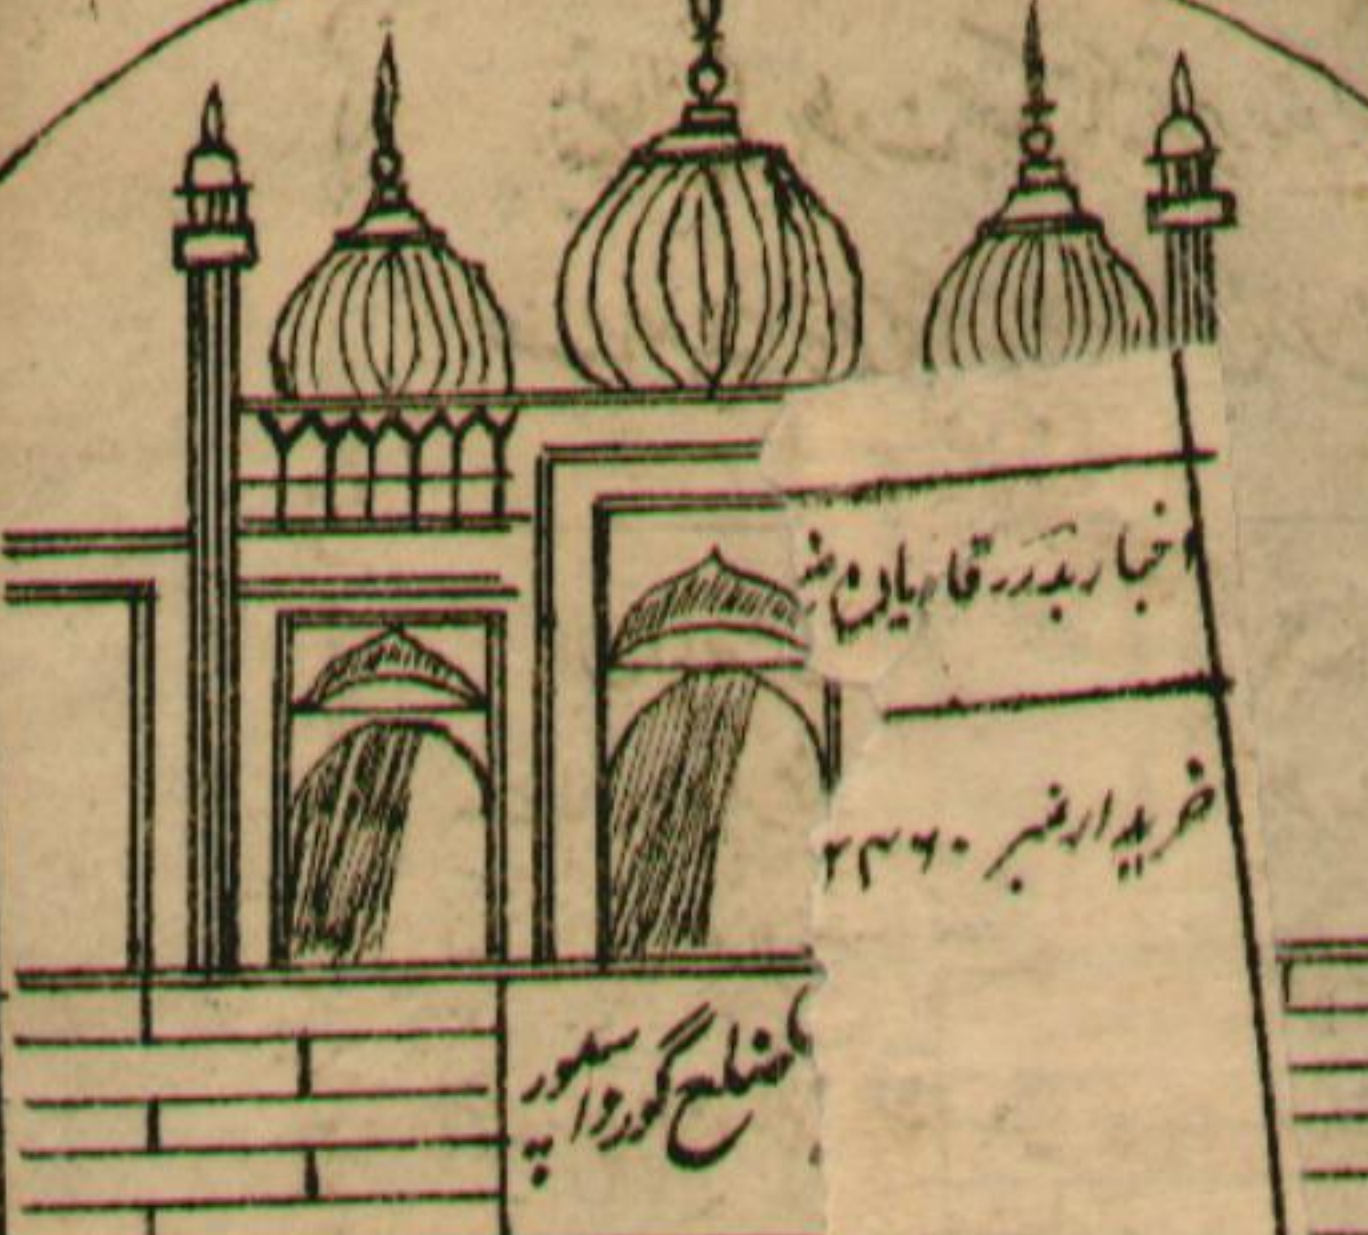 اخبار بدر قادیان ض
خریدار نمبر ۲۳۶۰
ضلع گورداسپور